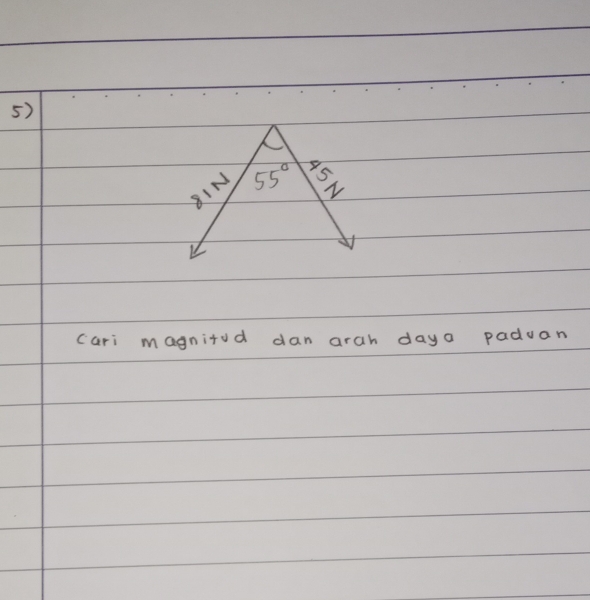 5)
81N
55°
45N
Cari magnitud dan arah daya paduan